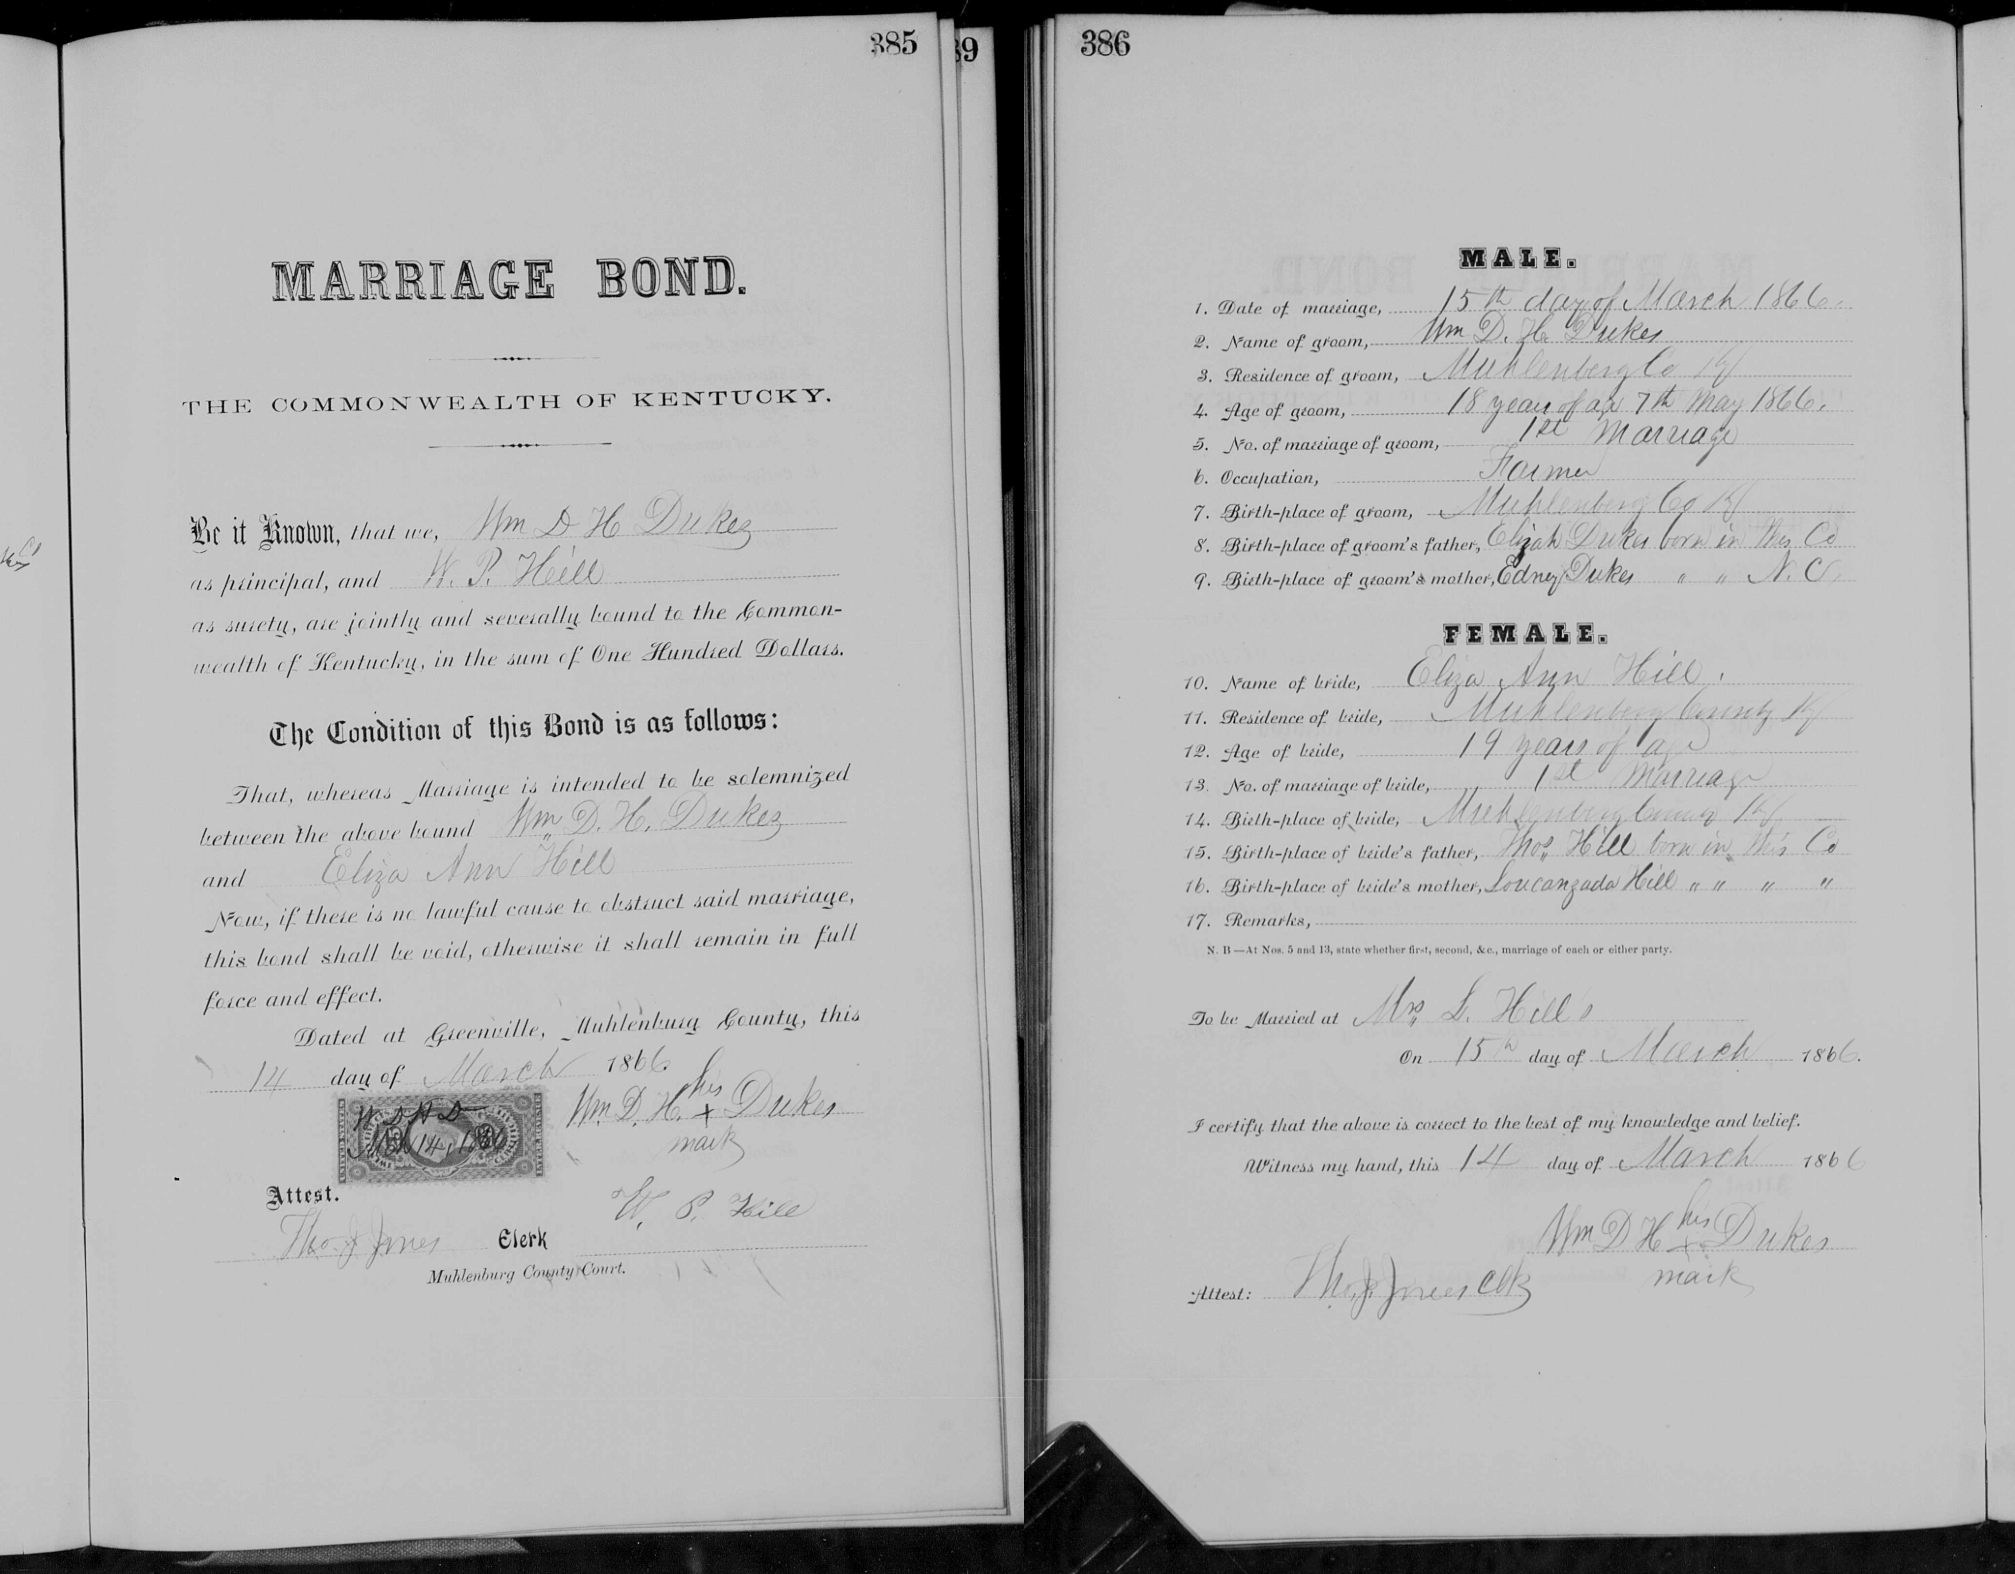 385
39
MARRIAGE BOND.
THE COMMONWEALTH OF KENTUCKY.
Be it Known, that we, Wm D H Dukes
as principal, and W. P. Hill
as surety, are jointly and severally bound to the Common-
wealth of Kentucky, in the sum of One Hundred Dollars.
The Condition of this Bond is as follows:
That, whereas Marriage is intended to be solemnized
between the above bound Wm D. H. Dukes
and Eliza Ann Hill
Now, if there is no lawful cause to obstruct said marriage,
this bond shall be void, otherwise it shall remain in full
force and effect.
Dated at Greenville, Muhlenburg County, this
14 day of March 1866
Wm. D. H. his + Dukes
mark
W D H D
Mch 14, 1866
Attest.
W. P. Hill
Tho. J. Jones Clerk
Muhlenburg County Court.
386
MALE.
1. Date of marriage, 15th day of March 1866.
2. Name of groom, Wm D. H. Dukes
3. Residence of groom, Muhlenberg Co Ky
4. Age of groom, 18 years of age 7th May 1866.
5. No. of marriage of groom, 1st Marriage
6. Occupation, Farmer
7. Birth-place of groom, Muhlenberg Co Ky
8. Birth-place of groom's father, Elijah Dukes born in this Co
9. Birth-place of groom's mother, Edney Dukes " " N. C.
FEMALE.
10. Name of bride, Eliza Ann Hill.
11. Residence of bride, Muhlenberg County Ky
12. Age of bride, 19 years of age
13. No. of marriage of bride, 1st Marriage
14. Birth-place of bride, Muhlenberg County Ky
15. Birth-place of bride's father, Thos. Hill born in this Co
16. Birth-place of bride's mother, Loucanzada Hill " " " "
17. Remarks,
N. B—At Nos. 5 and 13, state whether first, second, &c., marriage of each or either party.
To be Married at Mrs. L. Hill's
On 15th day of March 1866.
I certify that the above is correct to the best of my knowledge and belief.
Witness my hand, this 14 day of March 1866
Wm D H his + Dukes
mark
Attest: Tho. J. Jones Clk